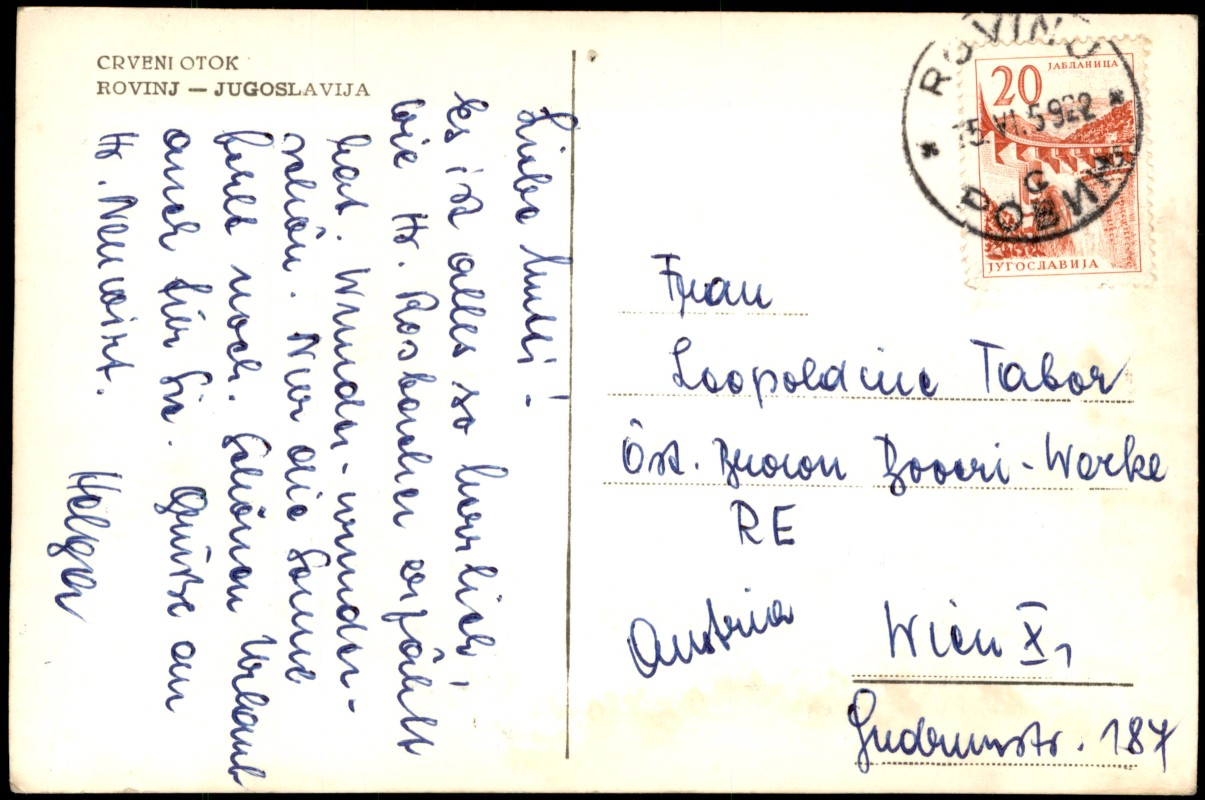 CRVENI OTOK
ROVINJ — JUGOSLAVIJA
Liebe Mutti!
Es ist alles so herrlich,
wie Hr. Rosbacher erzählt
hat. Wunder-wunder-
schön. Nur die Sonne
fehlt noch. Schönen Urlaub
auch für Sie. Grüße an
Hr. Neuwirt.
Helga
ROVINJ
VI.59
C
РОВИЊ
20
ЈАБЛАНИЦА
ЈУГОСЛАВИЈА
Frau
Leopoldine Tabor
Öst. Brown Boveri-Werke
RE
Austria
Wien X,
Gudrunstr. 187